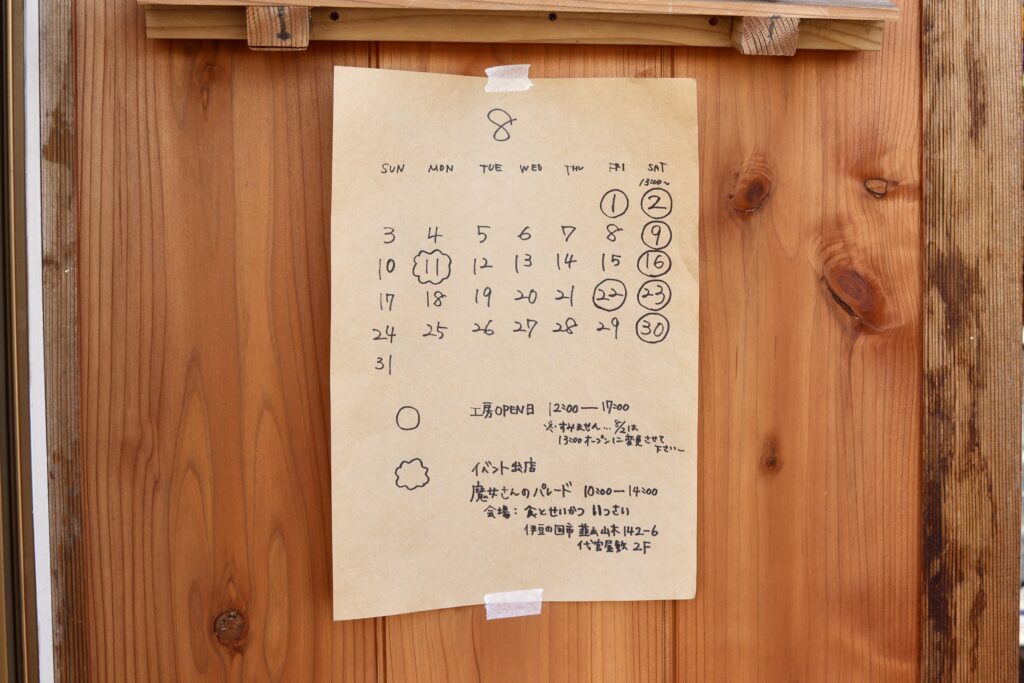 8
SUN MON TUE WED THU FRI SAT
13:00〜
1 2
3 4 5 6 7 8 9
10 11 12 13 14 15 16
17 18 19 20 21 22 23
24 25 26 27 28 29 30
31
工房OPEN日 12:00—17:00
※すみません…8/2は
13:00オープンに変更させて
下さい〜
イベント出店
魔女さんのパレード 10:00—14:00
会場:食とせいかつ いっさい
伊豆の国市 韮山山木142-6
代官屋敷 2F